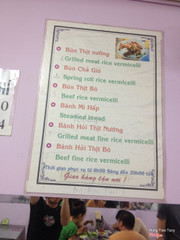 Bún Thịt nướng
Grilled meat rice vermicelli
Bún Chả Giò
Spring roll rice vermicelli
Bún Thịt Bò
Beef rice vermicelli
Bánh Mì Hấp
Steamed bread
Bánh Hỏi Thịt Nướng
Grilled meat fine rice vermicelli
Bánh Hỏi Thịt Bò
Beef fine rice vermicelli
Thời gian phục vụ từ
Giao hàng tận nơi !